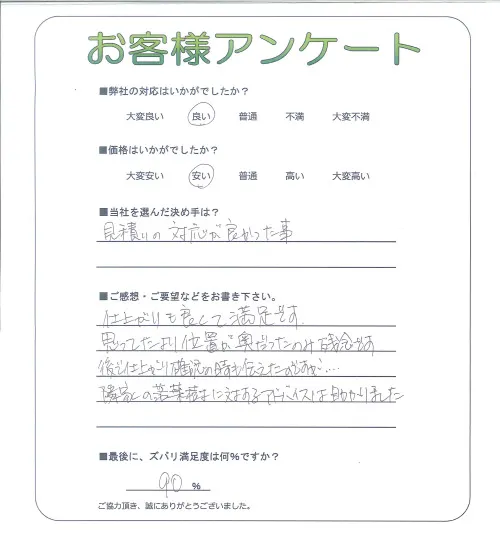 お客様アンケート
■弊社の対応はいかがでしたか？
大変良い 良い 普通 不満 大変不満
■価格はいかがでしたか？
大変安い 安い 普通 高い 大変高い
■当社を選んだ決め手は？
見積りの対応が良かった事
■ご感想・ご要望などをお書き下さい。
仕上がりも良くて満足です。
思ってたより位置が奥だったのみ残念です
後で仕上がり確認の時も伝えたのですが・・・・
隣家との落葉 に対するアドバイスは助かりました
■最後に、ズバリ満足度は何%ですか？
90 %
ご協力頂き、誠にありがとうございました。